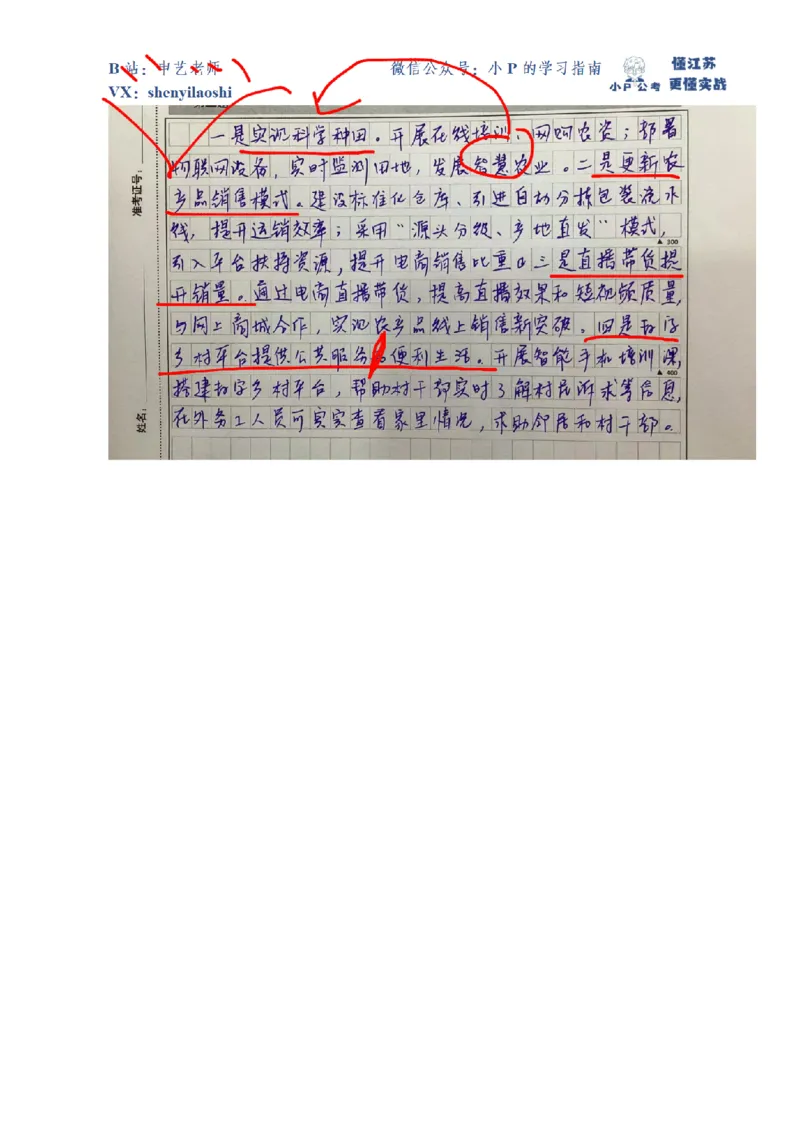 B站：申艺老师
微信公众号：小P的学习指南
小P公考
懂江苏
更懂实战
VX：shenyilaoshi
准考证号：
姓名：
一是实现科学种田。开展在线培训、网购农资；部署
物联网设备，实时监测田地，发展智慧农业。二是更新农
产品销售模式。建设标准化仓库、引进自动分拣包装流水
线，提升运销效率；采用“源头分级、产地直发”模式，
▲ 300
引入平台扶持资源，提升电商销售比重。三是直播带货提
升销量。通过电商直播带货，提高直播效果和短视频质量，
与网上商城合作，实现农产品线上销售新突破。四是数字
乡村平台提供公共服务 便利生活。开展智能手机培训课，
▲ 400
搭建数字乡村平台，帮助村干部实时了解村民诉求等信息，
在外务工人员可实实查看家里情况，求助邻居和村干部。